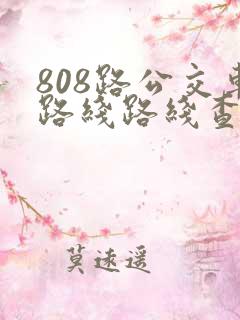 808路公交车
路线路线查
莫速遥